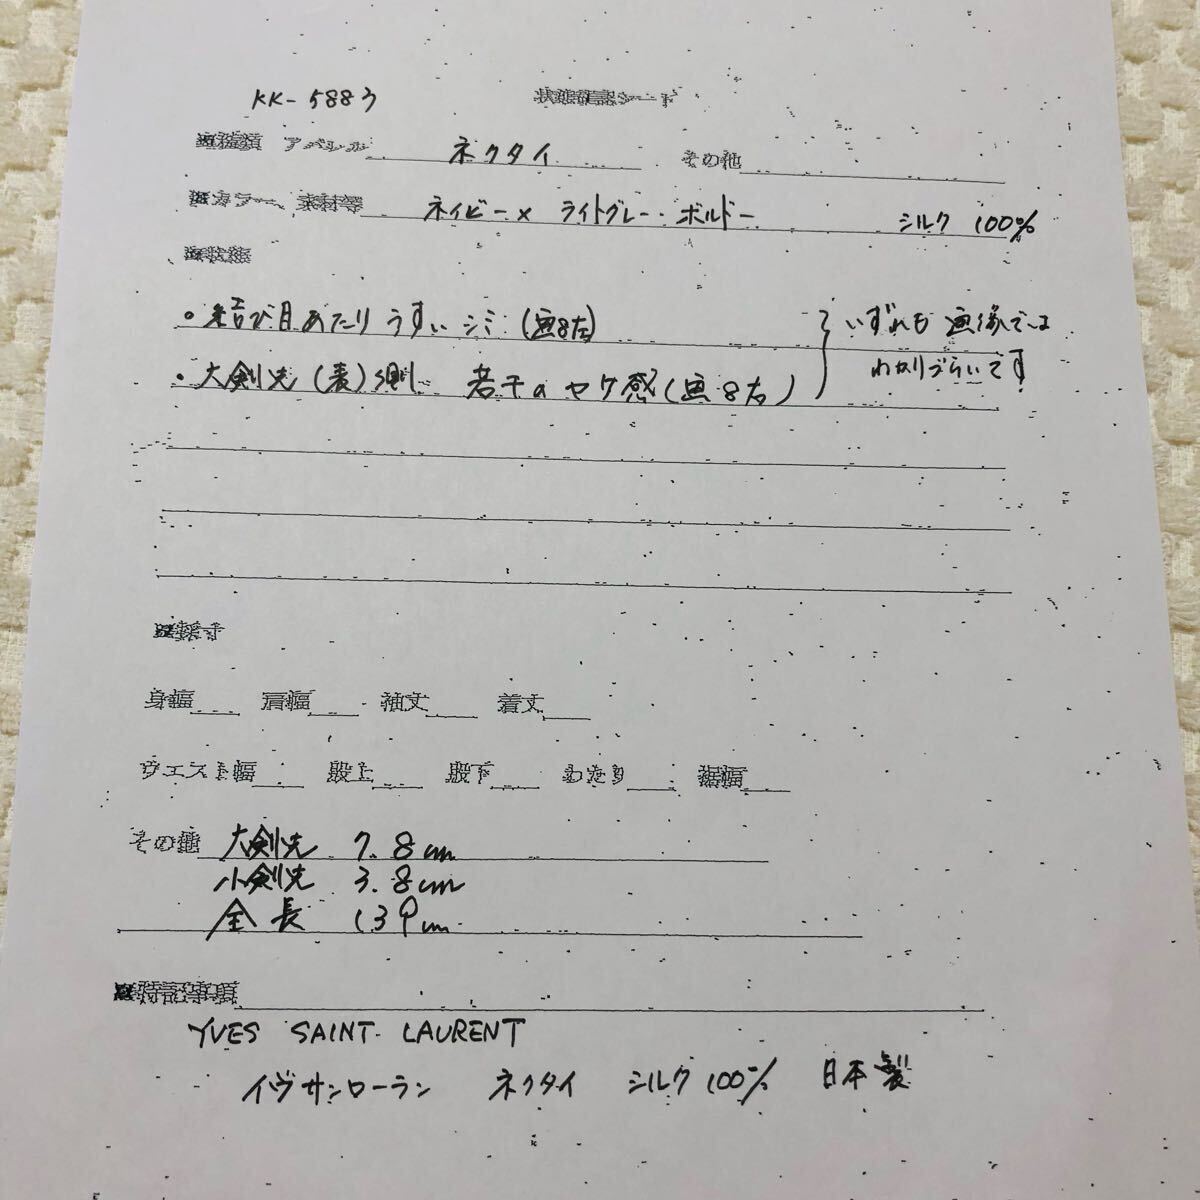 KK-5883 状態確認シート
■種類 アパレル ネクタイ その他
■カラー、素材等 ネイビー× ライトグレー・ボルドー シルク 100%
■状態
・結び目あたり うすいシミ (画8左)
・大剣先(表)側 若干のヤケ感(画8右) } いずれも画像ではわかりづらいです
■採寸
身幅 肩幅 袖丈 着丈
ウエスト幅 股上 股下 わたり 裾幅
その他 大剣先 7.8cm
小剣先 3.8cm
全長 139cm
■特記事項
YVES SAINT LAURENT
イヴサンローラン ネクタイ シルク100% 日本製